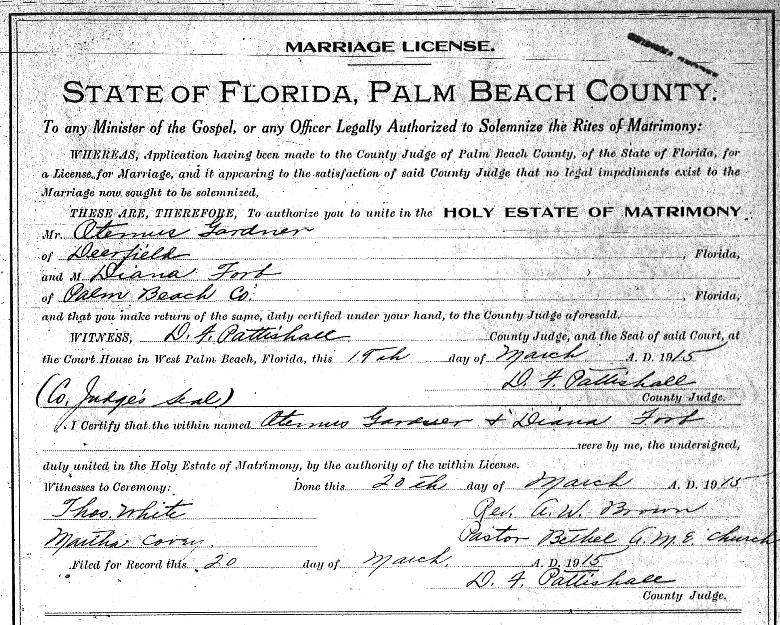 MARRIAGE LICENSE.
STATE OF FLORIDA, PALM BEACH COUNTY.
To any Minister of the Gospel, or any Officer Legally Authorized to Solemnize the Rites of Matrimony:
WHEREAS, Application having been made to the County Judge of Palm Beach County, of the State of Florida, for
a License for Marriage, and it appearing to the satisfaction of said County Judge that no legal impediments exist to the
Marriage now sought to be solemnized,
THESE ARE, THEREFORE, To authorize you to unite in the HOLY ESTATE OF MATRIMONY
Mr. Otemus Gardner
of Deerfield, Florida,
and M. Diana Fort
of Palm Beach Co., Florida,
and that you make return of the same, duly certified under your hand, to the County Judge aforesaid.
WITNESS, D. F. Pattishall County Judge, and the Seal of said Court, at
the Court House in West Palm Beach, Florida, this 19th day of March A. D. 1915
D. F. Pattishall
(Co. Judge's Seal) County Judge.
I Certify that the within named Otemus Gardner & Diana Fort
were by me, the undersigned,
duly united in the Holy Estate of Matrimony, by the authority of the within License.
Witnesses to Ceremony: Done this 20th day of March A. D. 1915
Thos. White Rev. A. W. Brown
Martha Pastor Bethel A. M. E. Church
Filed for Record this 20 day of March A. D. 1915
D. F. Pattishall
County Judge.